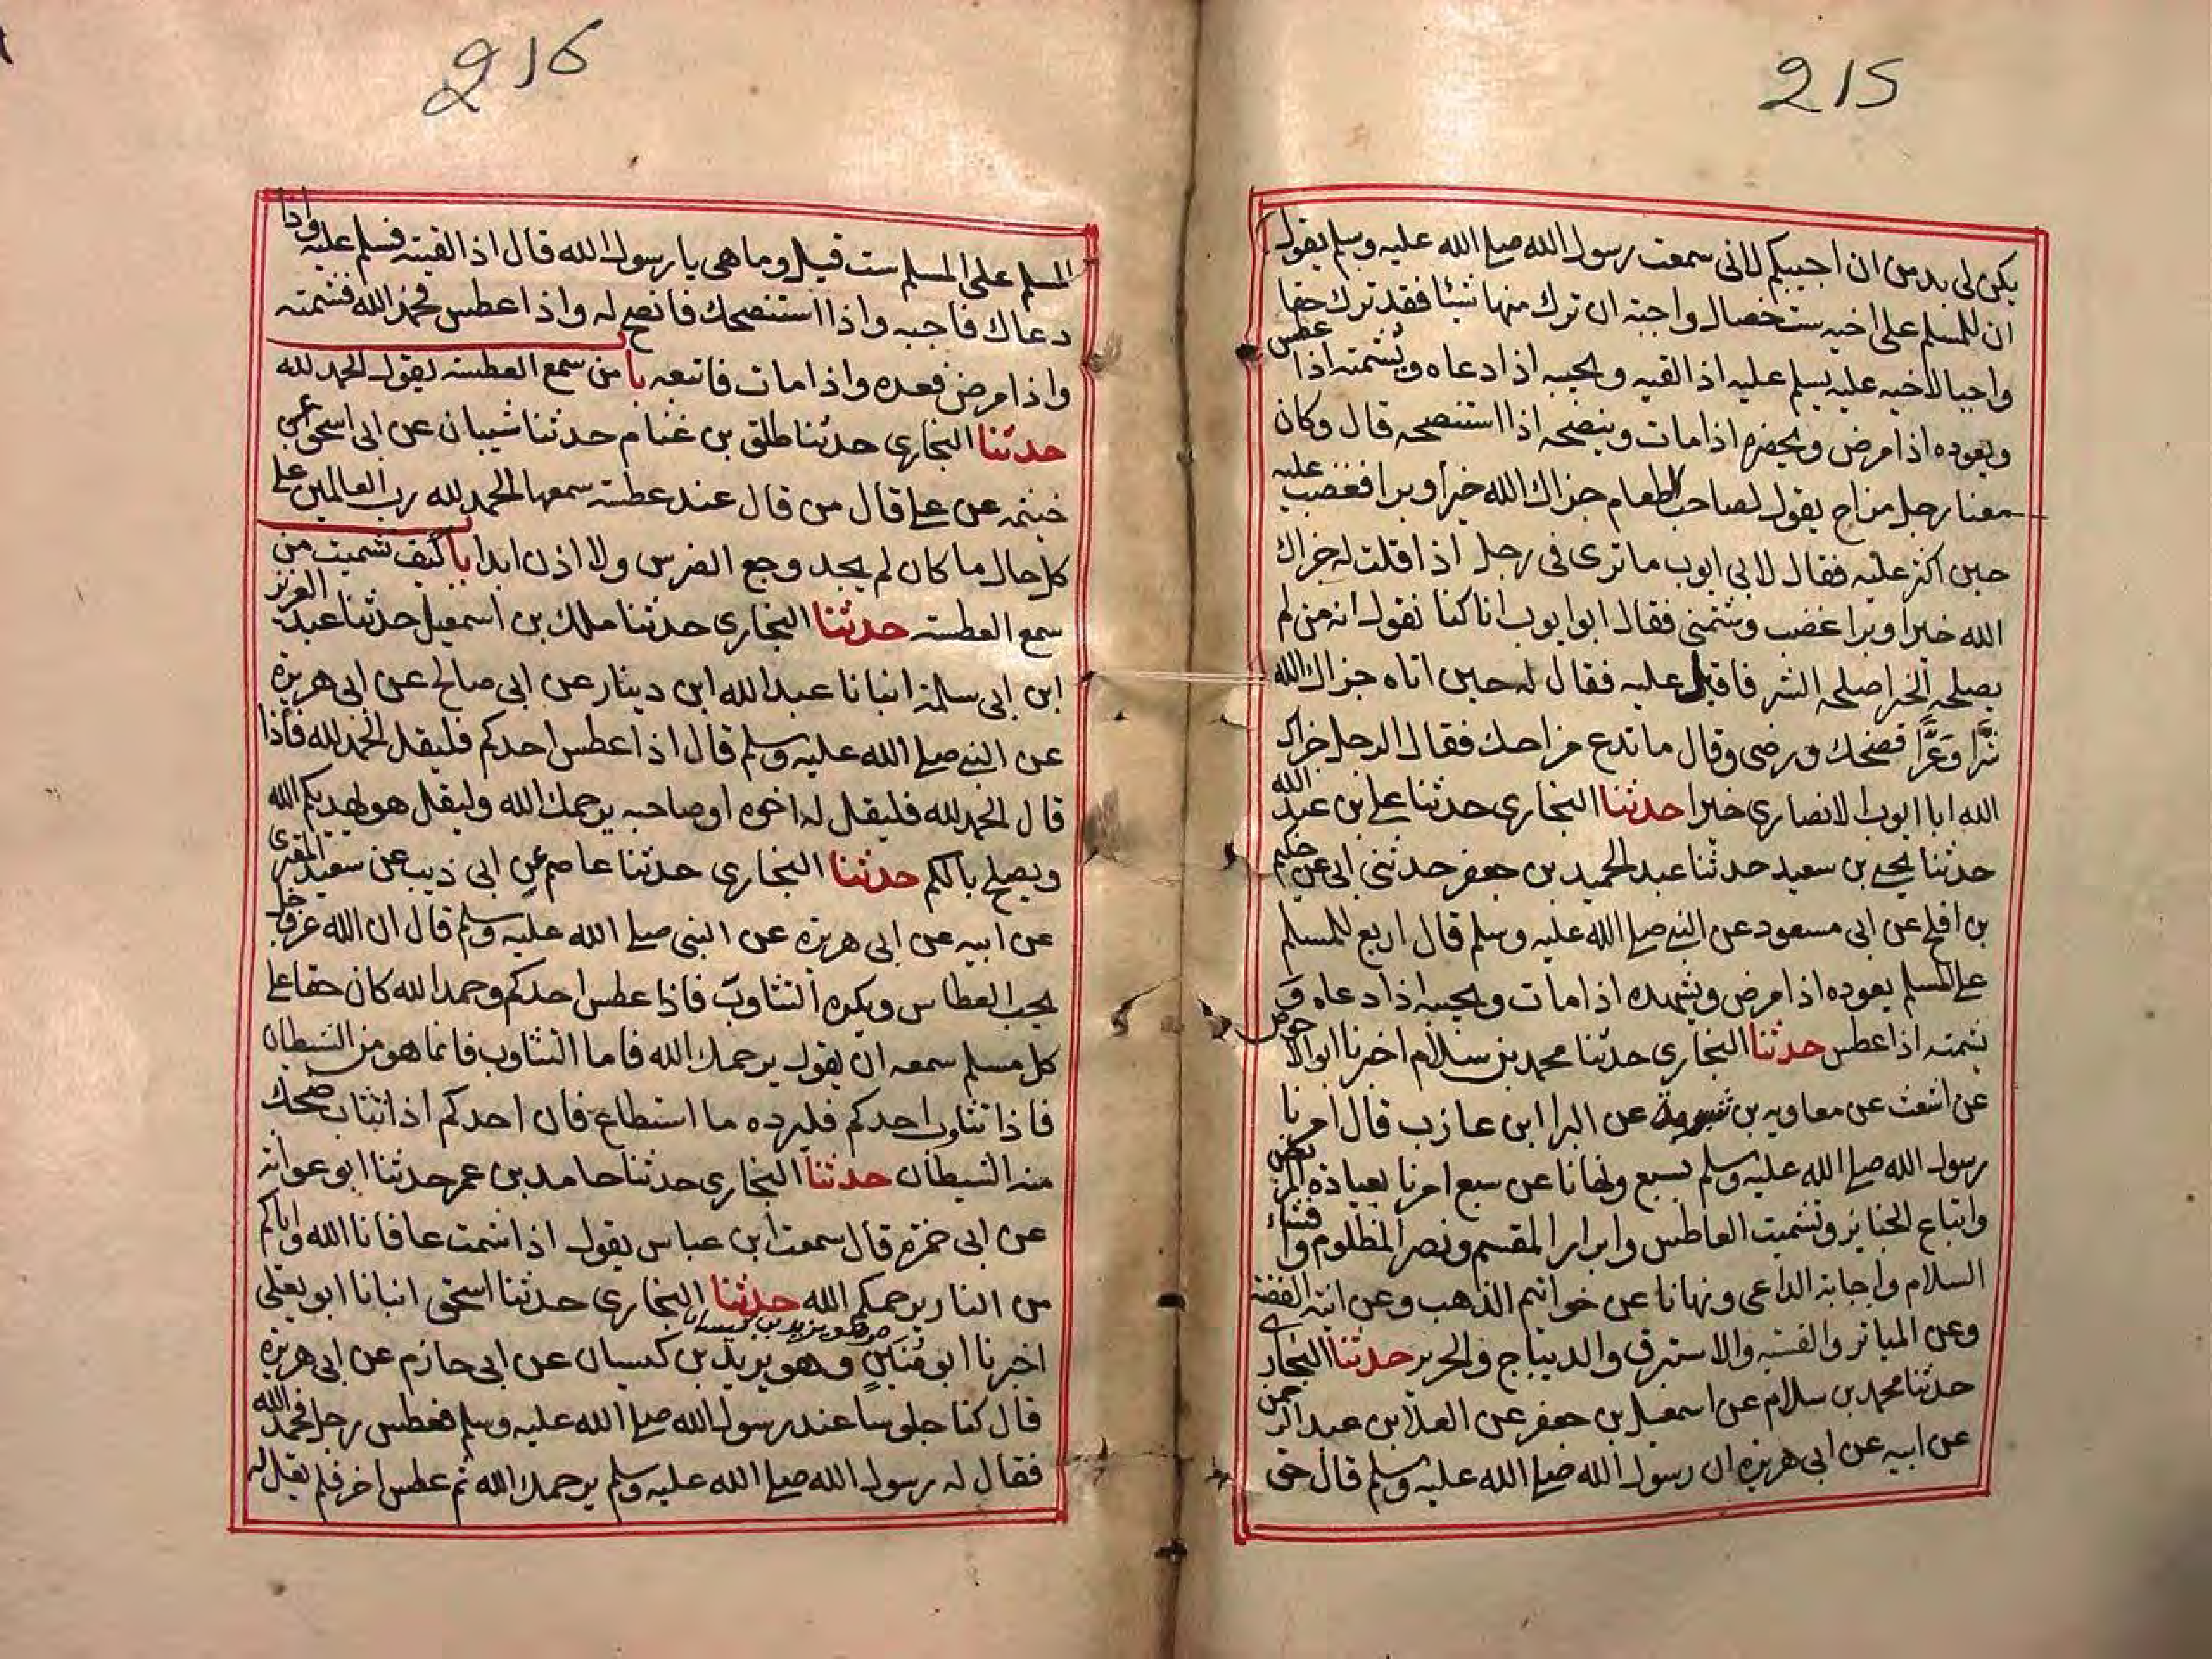 215
يكن لى بد من ان اجيبكم لانى سمعت رسول الله صلى الله عليه وسلم يقول
ان للمسلم على اخيه ست خصال واجبة ان ترك منها شيئا فقد ترك حقا
واجبا لاخيه عليه يسلم عليه اذا لقيه ويجيبه اذا دعاه ويشمته اذا عطس
ويعوده اذا مرض ويحضره اذا مات وينصحه اذا استنصحه قال وكان
معنا رجل مزاح يقول لصاحب الطعام جزاك الله خيرا وبرا فغضب عليه
حين اكثر عليه فقال لابى ايوب ما ترى فى رجل اذا قلت له جزاك
الله خيرا وبرا غضب وشتمنى فقال ابو ايوب انا كنا نقول انه من لم
يصلحه الخير اصلحه الشر فاقبل عليه فقال له حين اتاه جزاك الله
شرا وعرا فضحك ورضى وقال ما تدع مزاحك فقال الرجل جزاك
الله ابا ايوب الانصارى خيرا حدثنا البخارى حدثنا على بن عبد الله
حدثنا يحيى بن سعيد حدثنا عبد الحميد بن جعفر حدثنى ابى عن حكيم
بن افلح عن ابى مسعود عن النبى صلى الله عليه وسلم قال اربع للمسلم
على المسلم يعوده اذا مرض ويشهده اذا مات ويجيبه اذا دعاه و
يشمته اذا عطس حدثنا البخارى حدثنا محمد بن سلام اخبرنا ابو الاحوص
عن اشعث عن معاويه بن عن البرا ابن عازب قال امرنا
رسول الله صلى الله عليه وسلم بسبع ونهانا عن سبع امرنا بعيادة المريض
واتباع الجنايز وتشميت العاطس وابرار المقسم ونصر المظلوم وافشاء
السلام واجابة الداعى ونهانا عن خواتيم الذهب وعن انية الفضة
وعن المياثر والقسية والاستبرق والديباج والحرير حدثنا البخارى
حدثنا محمد بن سلام عن اسمعيل بن جعفر عن العلا بن عبد الرحمن
عن ابيه عن ابى هريرة ان رسول الله صلى الله عليه وسلم قال حق
216
المسلم على المسلم ست قيل وما هى يا رسول الله قال اذا لقيته فسلم عليه واذا
دعاك فاجبه واذا استنصحك فانصح له واذا عطس فحمد الله فشمته
واذا مرض فعده واذا مات فاتبعه با من سمع العطسة يقول الحمد لله
حدثنا البخارى حدثنا طلق بن غنام حدثنا شيبان عن ابى اسحق عن
خيثمة عن على قال من قال عند عطسة سمعها الحمد لله رب العالمين على
كل حال ما كان لم يجد وجع الضرس ولا اذن ابدا با كيف تشميت من
سمع العطسة حدثنا البخارى حدثنا ملك بن اسمعيل حدثنا عبد العزيز
ابن ابى سلمة انبانا عبد الله ابن دينار عن ابى صالح عن ابى هريرة
عن النبى صلى الله عليه وسلم قال اذا عطس احدكم فليقل الحمد لله فاذا
قال الحمد لله فليقل له اخوه او صاحبه يرحمك الله وليقل هو يهديكم الله
ويصلح بالكم حدثنا البخارى حدثنا عاصم عن ابى ذيب عن سعيد المقبرى
عن ابيه عن ابى هريرة عن النبى صلى الله عليه وسلم قال ان الله عز وجل
يحب العطاس ويكره التثاوب فاذا عطس احدكم وحمد الله كان حقا على
كل مسلم سمعه ان يقول يرحمك الله فاما التثاوب فانما هو من الشيطان
فاذا تثاوب احدكم فليرده ما استطاع فان احدكم اذا تثاب ضحك
منه الشيطان حدثنا البخارى حدثنا حامد بن عمر حدثنا ابو عوانة
عن ابى جمرة قال سمعت ابن عباس يقول اذا شمت عافانا الله واياكم
من النار يرحمكم الله حدثنا البخارى حدثنا اسحق انبانا ابو يعلى
هو يزيد بن كيسان
اخبرنا ابو منين وهو يزيد بن كيسان عن ابى حازم عن ابى هريرة
قال كنا جلوسا عند رسول الله صلى الله عليه وسلم فعطس رجل فحمد الله
فقال له رسول الله صلى الله عليه وسلم يرحمك الله ثم عطس اخر فلم يقل له